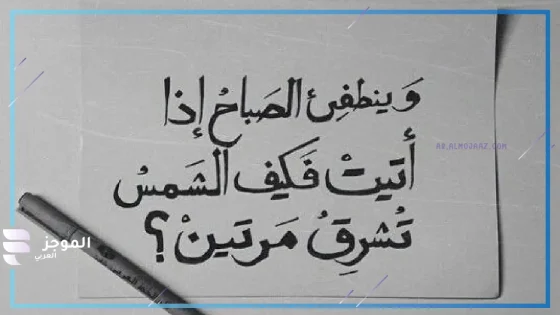 وَينطفِئ الصَباحُ إذا
أتيتْ فَكيف الشَمسُ
تُشرِقُ مَرتينْ؟
AR.ALMOJAAZ.COM
الموجز
العربي